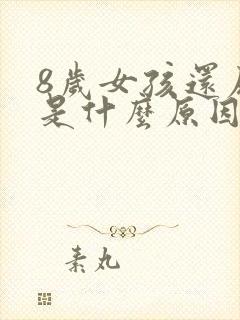 8歲女孩還
是什麼原因
素丸